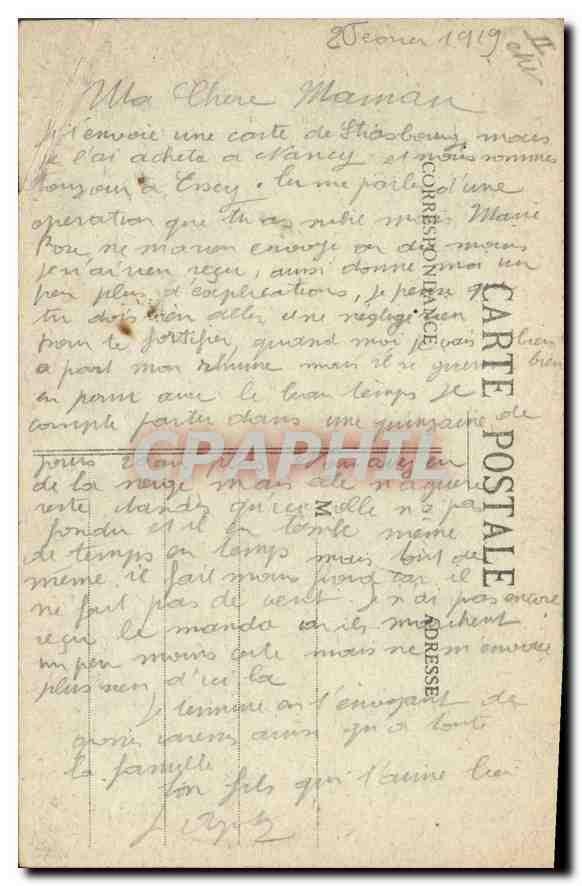 2 Février 1919
II
Ma Chere Maman
Je t'envoie une carte de Strasbourg mais
je l'ai acheté a Nancy et nous sommes
toujour a Essey. Tu me parle d'une
operation que tu as subie mais Marie
Rose ne m'a rien envoyé ou du moins
je n'ai rien reçu, aussi donne moi un
peu plus d'explications, je pense que
tu dois bien aller
pour te fortifier, quand moi je vais bien
a part mon rhume mais il se guerit bien
en parm avec le beau temps je
compte partir dans une quinzaine de
jours
de la neige mais elle n'a guere
reste tandis qu'ici elle n'a pas
fondu et il en tombe même
de temps en temps mais tout de
même il fait moins froid car il
ne fait pas de vent. Je n'ai pas encore
reçu le manda ils marchent
un peu moins vite mais ne m'envoie
plus rien d'ici la
Je termine en t'envoyant de
grosses caresses ainsi qu'a toute
la famille
ton fils qui t'aime bien
CARTE POSTALE
CORRESPONDANCE
ADRESSE
M
CPAPHIL